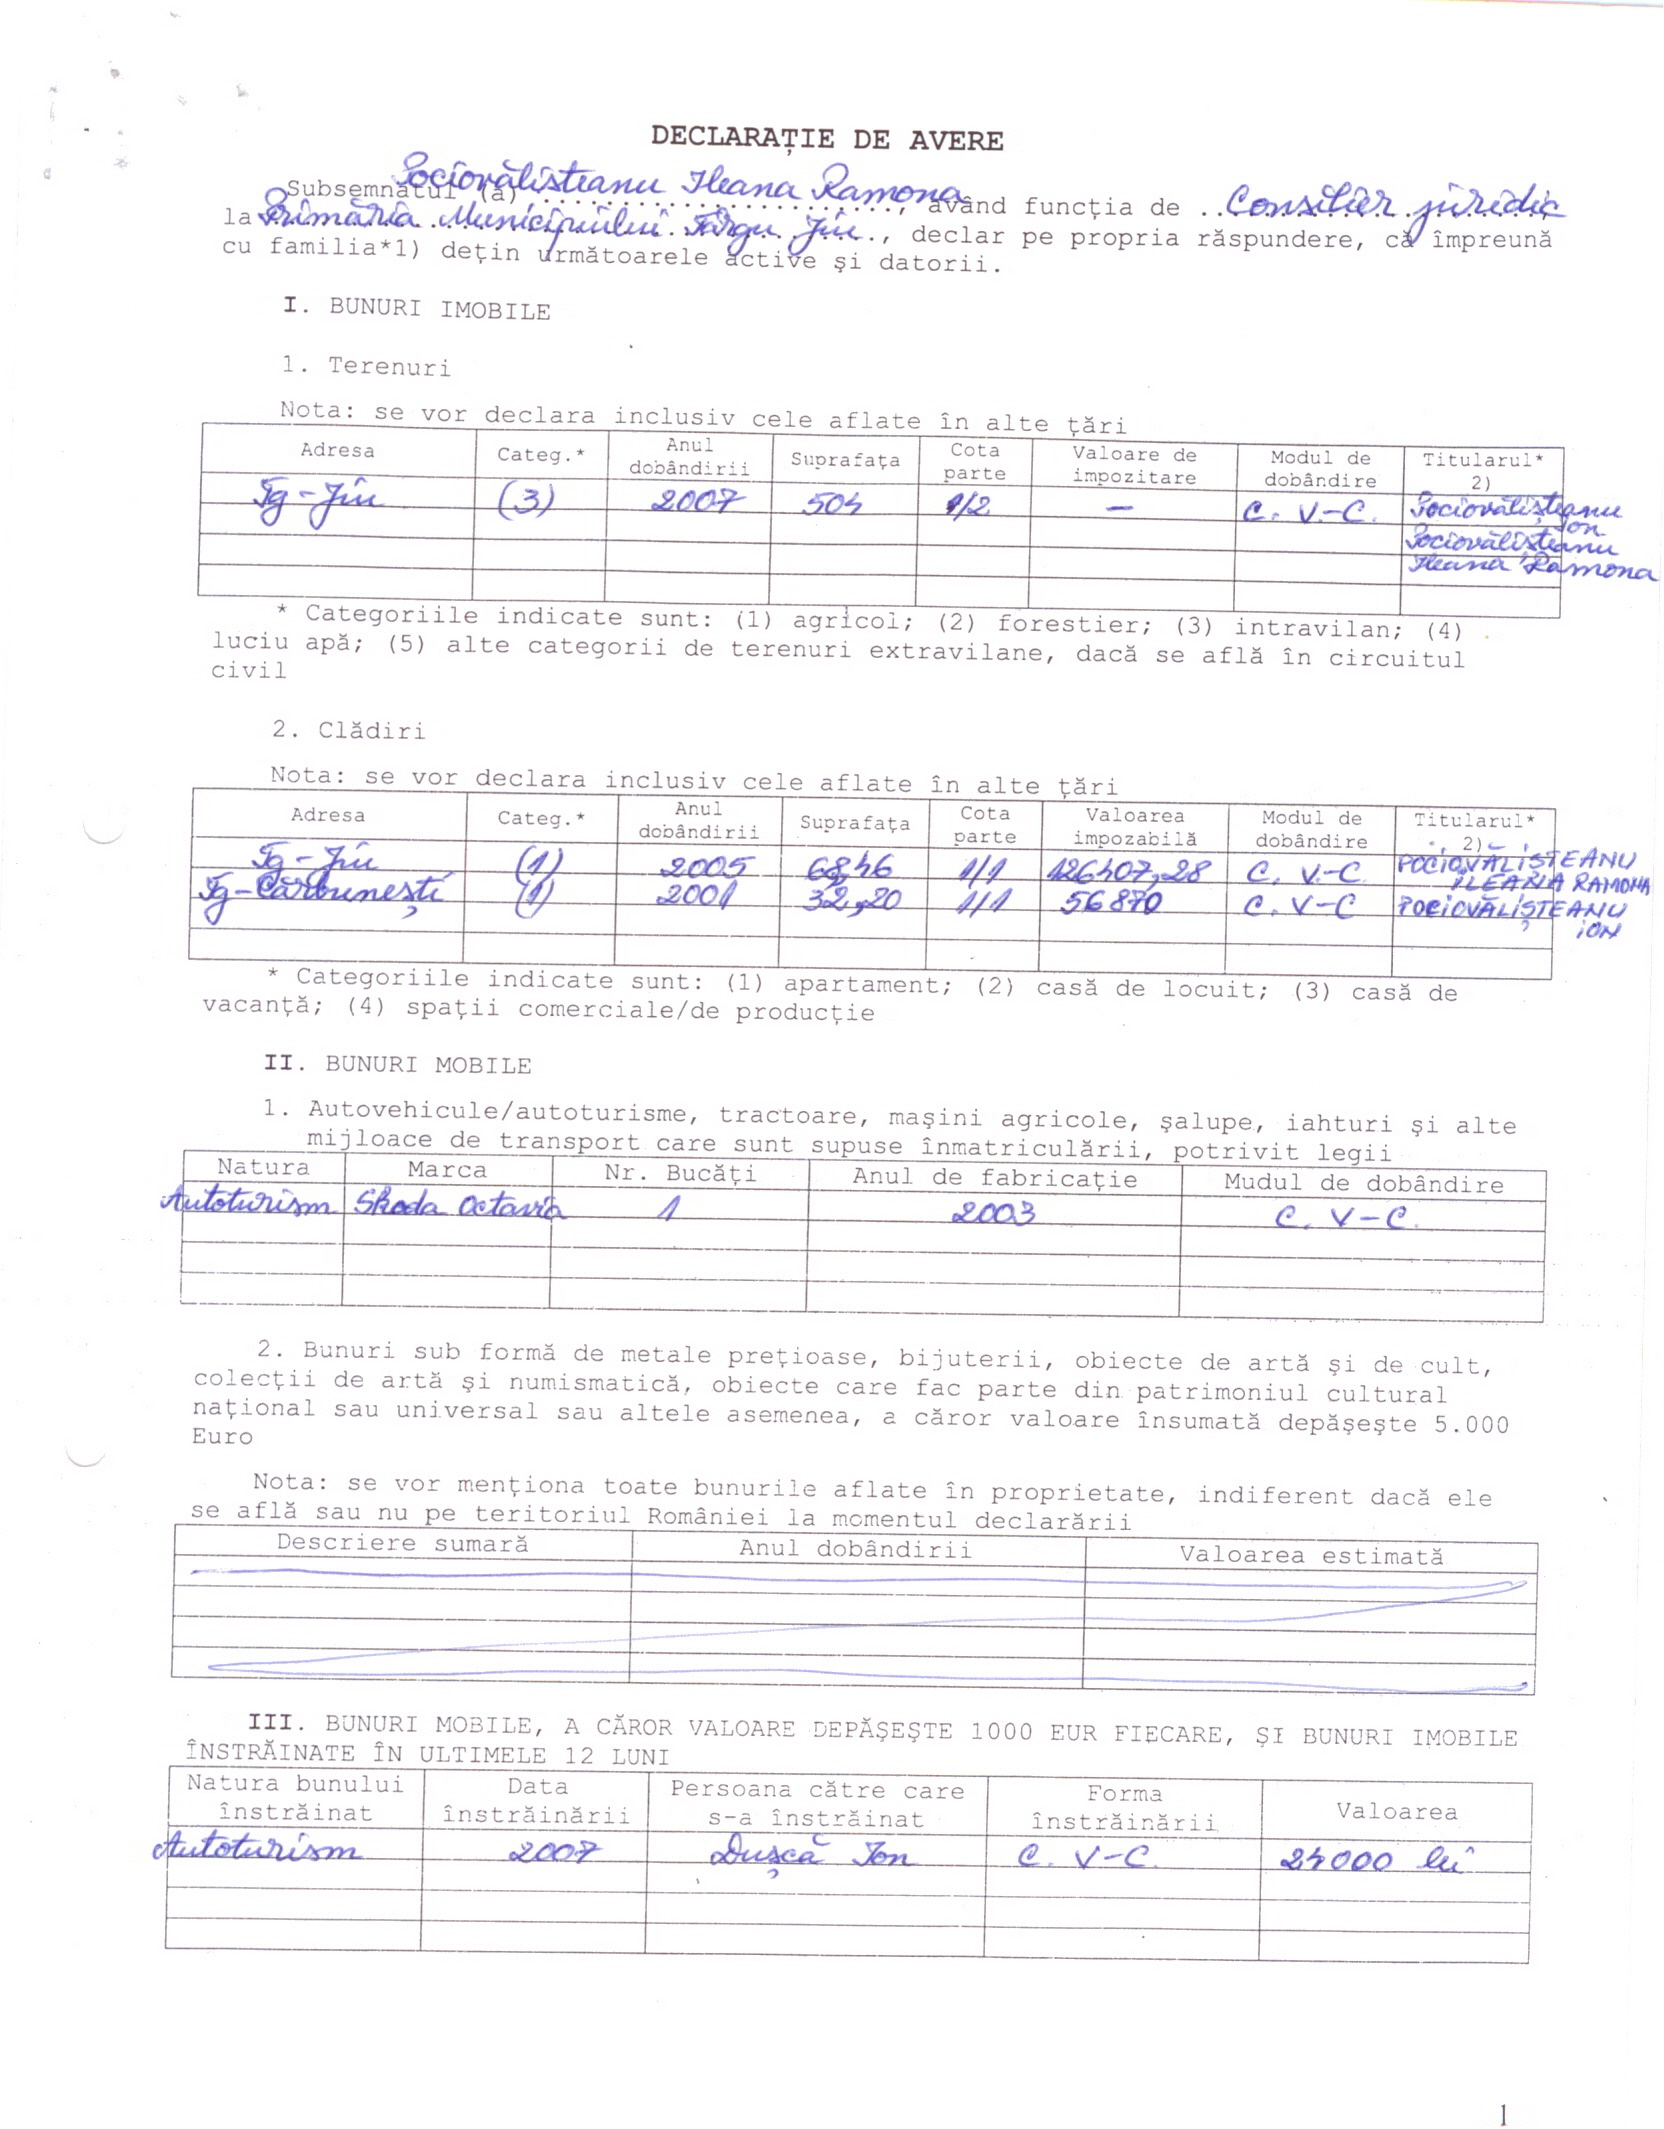 DECLARAŢIE DE AVERE
Subsemnatul (a) Pociovălişteanu Ileana Ramona, având funcţia de Consilier juridic
la Primăria Municipiului Târgu Jiu, declar pe propria răspundere, că împreună
cu familia*1) deţin următoarele active şi datorii.
I. BUNURI IMOBILE
1. Terenuri
Nota: se vor declara inclusiv cele aflate în alte ţări
Adresa Categ.* Anul dobândirii Suprafaţa Cota parte Valoare de impozitare Modul de dobândire Titularul* 2)
Tg-Jiu (3) 2007 504 1/2 — C. V-C. Pociovălişteanu Ion
Pociovălişteanu
Ileana Ramona
* Categoriile indicate sunt: (1) agricol; (2) forestier; (3) intravilan; (4)
luciu apă; (5) alte categorii de terenuri extravilane, dacă se află în circuitul
civil
2. Clădiri
Nota: se vor declara inclusiv cele aflate în alte ţări
Adresa Categ.* Anul dobândirii Suprafaţa Cota parte Valoarea impozabilă Modul de dobândire Titularul* 2)
Tg-Jiu (1) 2005 68,46 1/1 126407,28 C. V-C POCIOVĂLIŞTEANU ILEANA RAMONA
Tg-Cărbuneşti (1) 2001 32,20 1/1 56870 C. V-C POCIOVĂLIŞTEANU ION
* Categoriile indicate sunt: (1) apartament; (2) casă de locuit; (3) casă de
vacanţă; (4) spaţii comerciale/de producţie
II. BUNURI MOBILE
1. Autovehicule/autoturisme, tractoare, maşini agricole, şalupe, iahturi şi alte
mijloace de transport care sunt supuse înmatriculării, potrivit legii
Natura Marca Nr. Bucăţi Anul de fabricaţie Mudul de dobândire
Autoturism Skoda Octavia 1 2003 C. V-C.
2. Bunuri sub formă de metale preţioase, bijuterii, obiecte de artă şi de cult,
colecţii de artă şi numismatică, obiecte care fac parte din patrimoniul cultural
naţional sau universal sau altele asemenea, a căror valoare însumată depăşeşte 5.000
Euro
Nota: se vor menţiona toate bunurile aflate în proprietate, indiferent dacă ele
se află sau nu pe teritoriul României la momentul declarării
Descriere sumară Anul dobândirii Valoarea estimată
III. BUNURI MOBILE, A CĂROR VALOARE DEPĂŞEŞTE 1000 EUR FIECARE, ŞI BUNURI IMOBILE
ÎNSTRĂINATE ÎN ULTIMELE 12 LUNI
Natura bunului înstrăinat Data înstrăinării Persoana către care s-a înstrăinat Forma înstrăinării Valoarea
Autoturism 2007 Duşcă Ion C. V-C. 24000 lei
1